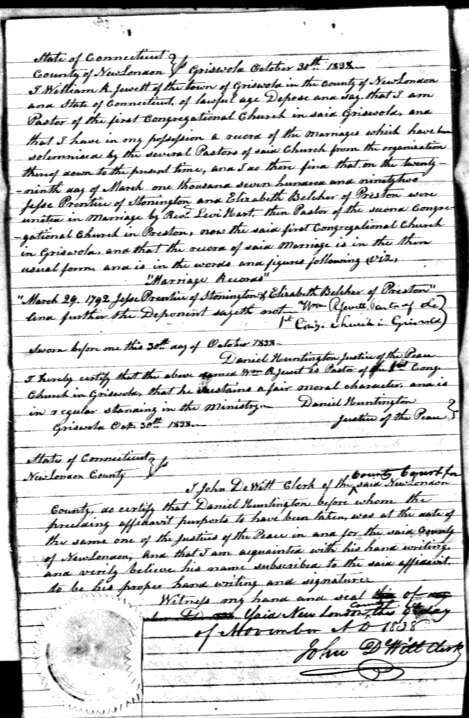 State of Connecticut } ss
County of New London } Griswold October 30th 1838.
I William R. Jewett of the town of Griswold in the County of New London
and State of Connecticut, of lawful age Depose and say, that I am
Pastor of the first Congregational Church in said Griswold, and
that I have in my possession a record of the marriages which have been
solemnised by the several Pastors of said Church from the organization
thereof down to the present time, and I do then find that on the twenty-
-ninth day of March one thousand seven hundred and ninety two
Jesse Prentice of Stonington and Elizabeth Belcher of Preston were
united in Marriage by Revd. Levi Hart then Pastor of the second Congre-
-gational Church in Preston, now the said first Congregational Church
in Griswold, and that the record of said Marriage is in the then
usual form and is in the words and figures following viz,
"Marriage Records"
"March 29. 1792 Jesse Prentice of Stonington & Elizabeth Belcher of Preston"
And further the Deponent sayeth not Wm R Jewett Pastor of the
1st Cong. Church in Griswold
Sworn before me this 30th day of October 1838
Daniel Huntington Justice of the Peace
I hereby certify that the above named Wm R Jewett is Pastor of the 1st Cong.
Church in Griswold, that he sustains a fair moral character, and is
in regular standing in the Ministry Daniel Huntington
Griswold Oct. 30th 1838. Justice of the Peace
State of Connecticut } ss
New London County }
I John DeWitt Clerk of the County Court for said New London
County, do certify that Daniel Huntington before whom the
preceding affidavit purports to have been taken, was at the date of
the same one of the Justices of the Peace in and for the said County
of New London, and that I am acquainted with his hand writing
and verily believe his name subscribed to the said affidavit
to be his proper hand writing and signature
Witness my hand and seal of
Said New London day
of November A D 1838
John DeWitt Clerk